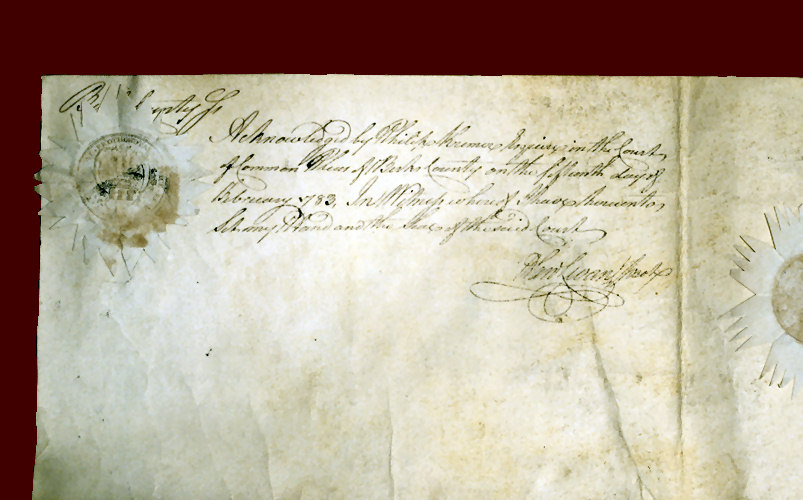 Berks County Ss
Acknowledged by Philip Kremer Esquire in the Court
of Common Pleas of Berks County on the fifteenth day of
February 1783. In Witness whereof I have hereunto
Set my Hand and the Seal of the said Court
Evans Proty